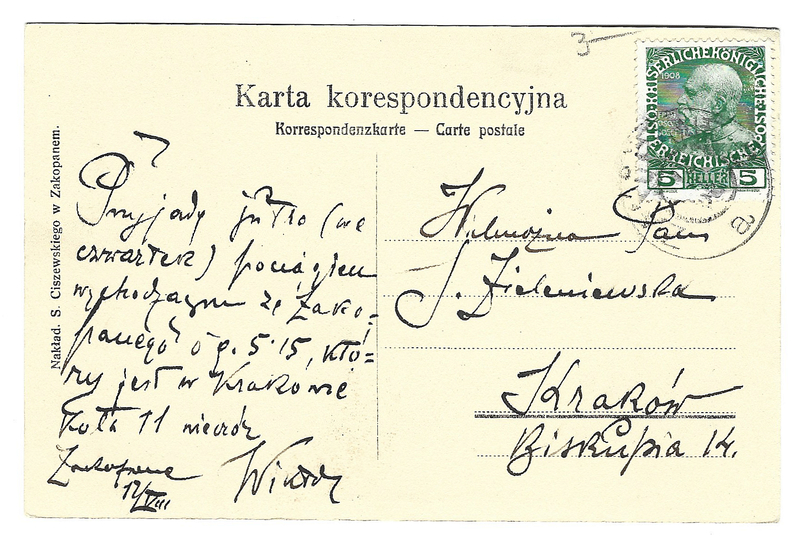 3-
KAISERLICHE KÖNIGLICHE ÖSTERREICHISCHE
1908
5 HELLER 5
a
Karta korespondencyjna
Korrespondenzkarte — Carte postale
Nakład. S. Ciszewskiego w Zakopanem.
Przyjadę jutro (we
czwartek) pociągiem
wychodzącym ze Zako-
panego o g. 5.15, któ-
ry jest w Krakowie
koło 11 wieczór
Zakopane
12/VIII
Wilmożna Pani
S. Zieleniewska
Kraków
Biskupia 14.